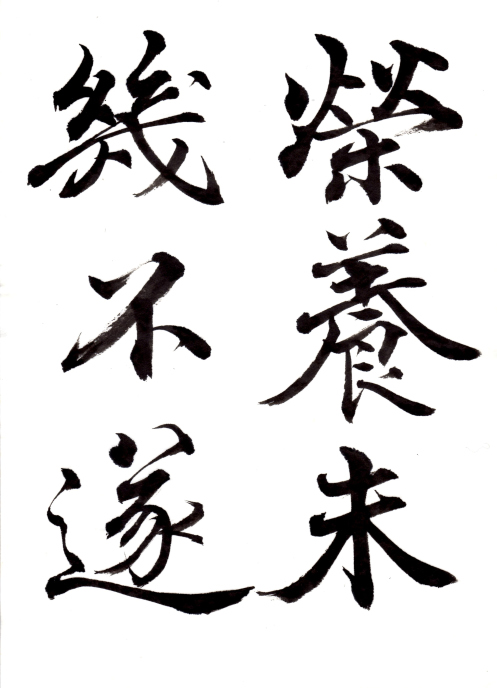 榮養未
幾不遂